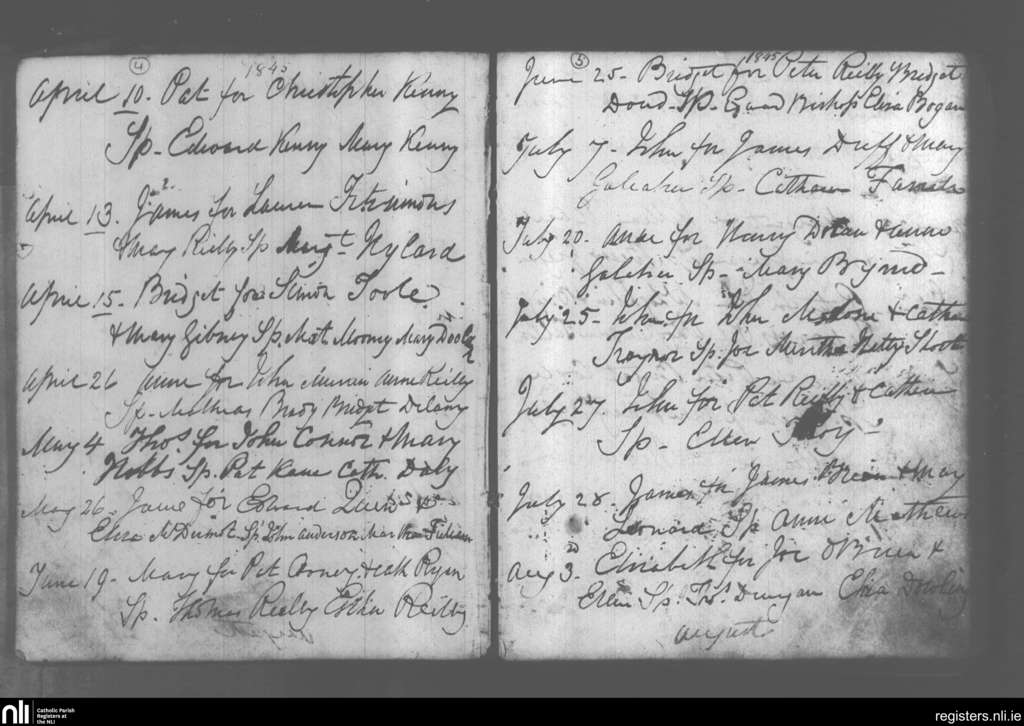 4
1845
April 10. Pat for Christopher Kenny
Sp. Edward Kenny Mary Kenny
April 13. James for Fitzsimons
& Mary Reilly Sp Nylard
April 15. Bridget for Simon Toole
& Mary Gibney Sp. Mat Mooney Mary
April 26 Anne for John Anne Reilly
Sp. Mathias Brady Bridget Delany
May 4 Thos for John Connor & Mary
Sp. Pat Kane Cath. Daly
May 26. Jane for Edward &
Eliza McDermot Sp John Anderson
June 19. Mary for Pat &
Sp. Thomas Reilly Esther Reilly
5
1845
June 25. Bridget for Peter Reilly Bridget
Sp. Bishop Eliza Bogan
July 7. John for James Duff & Mary
Sp.
July 20. Anne for Henry & Anne
Sp. Mary
July 25. John for John Malone & Cathn
Traynor Sp. Joe
July 27. John for Pat Reilly & Cathern
Sp. Ellen
July 28. James for James Brien & Mary
Leonard Sp Anne Mathews
Aug 3. Elizabeth for Joe O'Brien &
Ellen Sp. Ths. Dungan Eliza Dowling
August
nli
Catholic Parish
Registers at
the NLI
registers.nli.ie